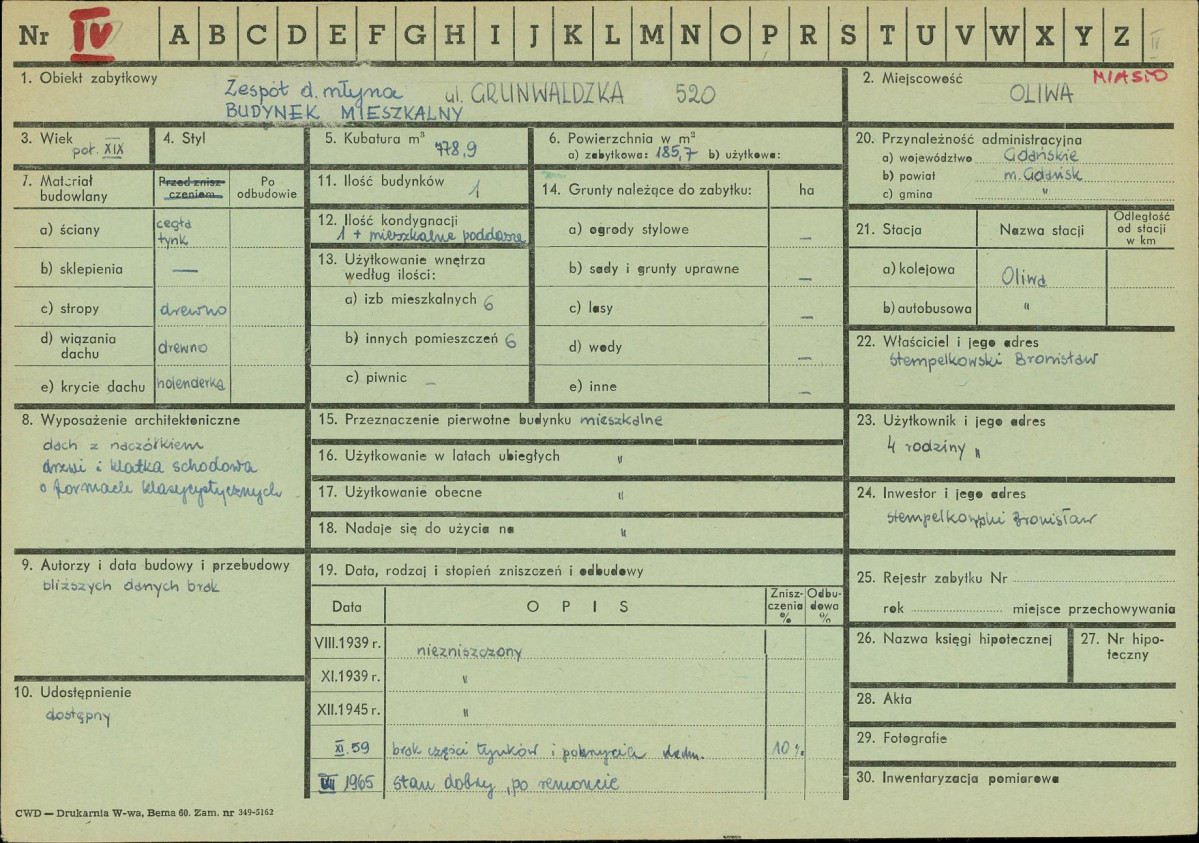 Nr IV A B C D E F G H I J K L M N O P R S T U V W X Y Z IV
1. Obiekt zabytkowy
Zespół d. młyna ul. GRUNWALDZKA 520
BUDYNEK MIESZKALNY
2. Miejscowość MIASTO
OLIWA
3. Wiek
poł. XIX
4. Styl
5. Kubatura m³ 778,9
6. Powierzchnia w m²
a) zabytkowa: 185,7 b) użytkowa:
20. Przynależność administracyjna
a) województwo Gdańskie
b) powiat m. Gdańsk
c) gmina "
7. Materiał budowlany
Przed zniszczeniem
Po odbudowie
a) ściany cegła tynk
b) sklepienia —
c) stropy drewno
d) wiązania dachu drewno
e) krycie dachu holenderka
11. Ilość budynków 1
12. Ilość kondygnacji
1 + mieszkalne poddasze
13. Użytkowanie wnętrza
według ilości:
a) izb mieszkalnych 6
b) innych pomieszczeń 6
c) piwnic –
14. Grunty należące do zabytku: ha
a) ogrody stylowe –
b) sady i grunty uprawne –
c) lasy –
d) wody –
e) inne –
21. Stacja
Nazwa stacji
Odległość od stacji w km
a) kolejowa Oliwa
b) autobusowa "
22. Właściciel i jego adres
Stempelkowski Bronisław
8. Wyposażenie architektoniczne
dach z naczółkiem
drzwi i klatka schodowa
o formach klasycystycznych
15. Przeznaczenie pierwotne budynku mieszkalne
16. Użytkowanie w latach ubiegłych "
17. Użytkowanie obecne "
18. Nadaje się do użycia na "
23. Użytkownik i jego adres
4 rodziny "
24. Inwestor i jego adres
Stempelkowski Bronisław
9. Autorzy i data budowy i przebudowy
bliższych danych brak
10. Udostępnienie
dostępny
19. Data, rodzaj i stopień zniszczeń i odbudowy
Data
OPIS
Zniszczenia %
Odbudowa %
VIII.1939 r. niezniszczony
XI.1939 r. "
XII.1945 r. "
XI.59 brak części tynków i pokrycia dachu. 10%
VIII 1965 stan dobry, po remoncie
25. Rejestr zabytku Nr
rok miejsce przechowywania
26. Nazwa księgi hipotecznej
27. Nr hipoteczny
28. Akta
29. Fotografie
30. Inwentaryzacja pomiarowa
CWD — Drukarnia W-wa, Bema 60. Zam. nr 349-5162